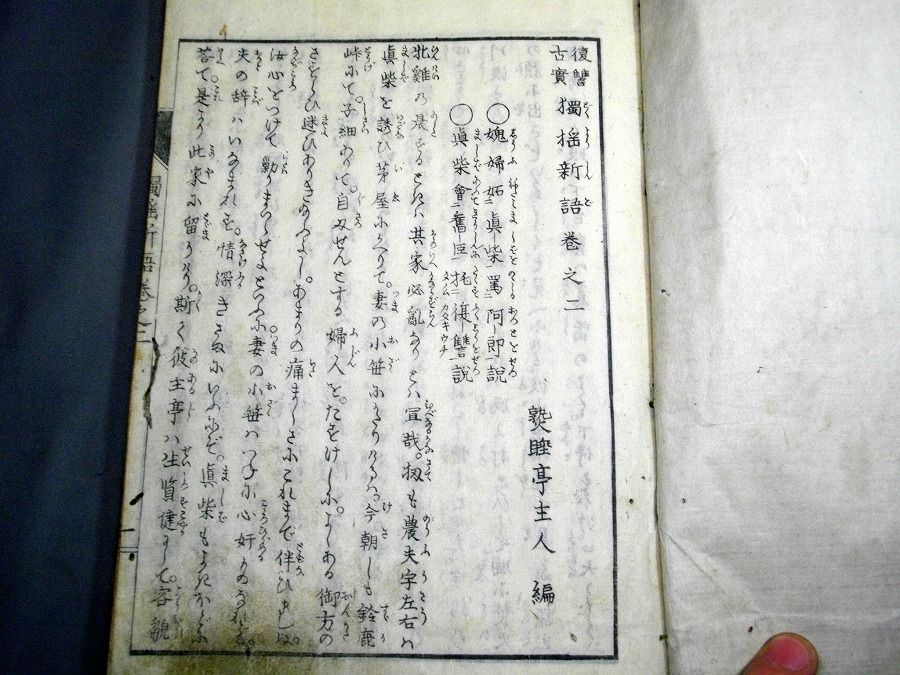 復讐古實 獨揺新語 巻之二
熟睡亭主人 編
◯媿婦妬眞柴罵阿郎説
◯眞柴會奮臣托復讐説
牝雞の晨するときハ其家必亂るとハ宜哉。扨も農夫字左右ハ
眞柴を誘ひ茅屋にかへりて。妻の小笹にかたりけるハ。今朝しも鈴鹿
峠にて。子細ありて。自刄せんとする婦人を。たすけしに。よしある御方の
さすらひ迷ひありきのよし。あまりの痛ましさにこれまで伴ひ申しぬ。
汝心をつけて勦りまゐらせよといふに妻の小笹ハつねに心奸なれ
夫の辞ハいなまれず。情深きさまに眞柴も
荅て。是より此家に留りけり。斯く彼主亭ハ生質健にして。容貌